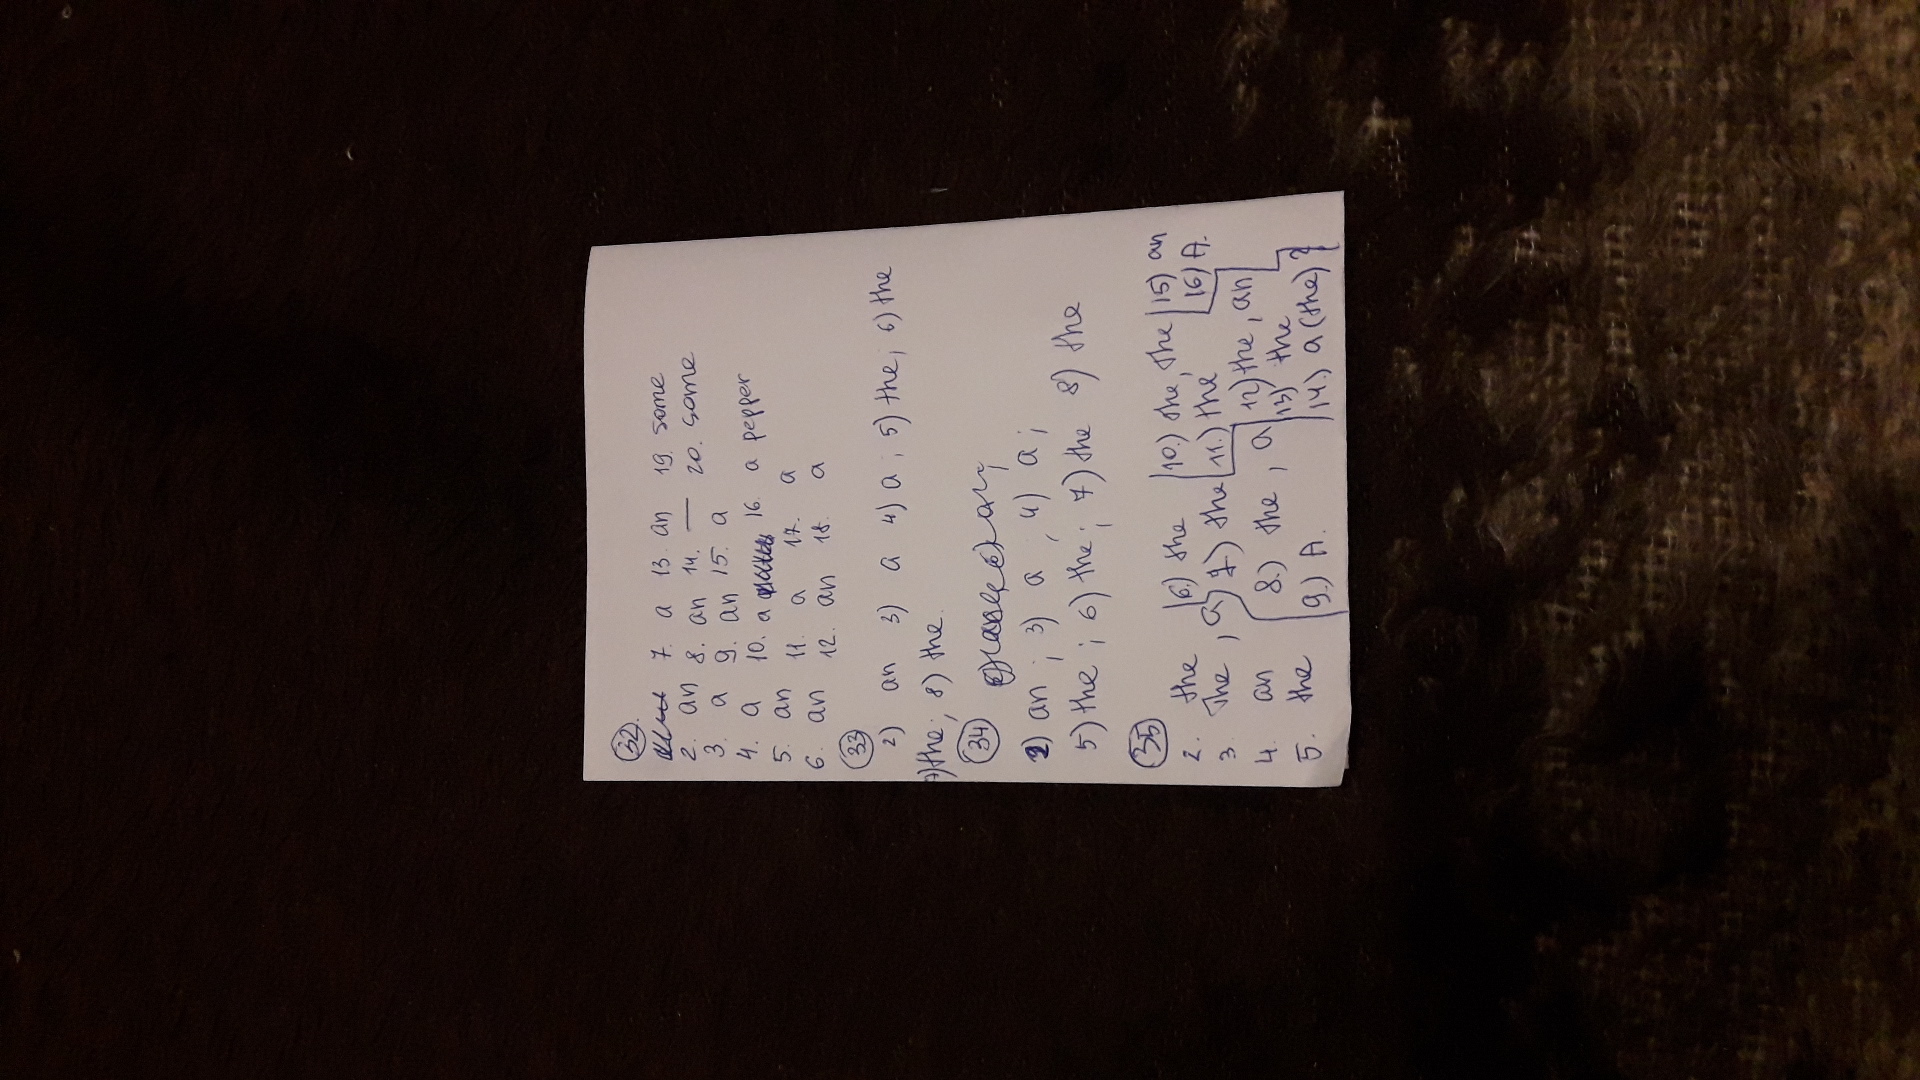 32.
7. a 13. an 19. some
2. an 8. an 14. — 20. some
3. a 9. an 15. a
4. a 10. a 16. a pepper
5. an 11. a 17. a
6. an 12. an 18. a
33
2) an 3) a 4) a; 5) the; 6) the
7) the; 8) the.
34
2) an; 3) a; 4) a;
5) the; 6) the; 7) the 8) the
35
2. the 6.) the 10.) the, the 15) an
3. The, a 7.) the 11.) the 16) A.
4. an 8.) the, a 12) the, an
5. the 9.) A. 13) the
14.) a (the)?